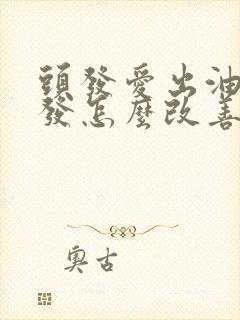 頭發愛出油
發怎麼改善
奧古